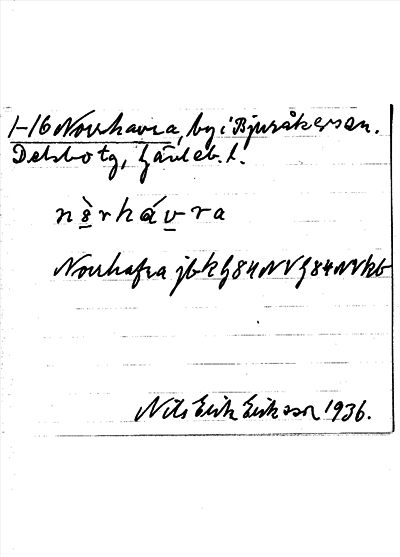 1-16 Norrhavra, by i Bjuråker sn.
Delsbo tg, Gävleb. l.
nò̱rháv̱ra
Norrhafra jbk G84NV G84NV kb
Nils Erik Eriksson 1936.